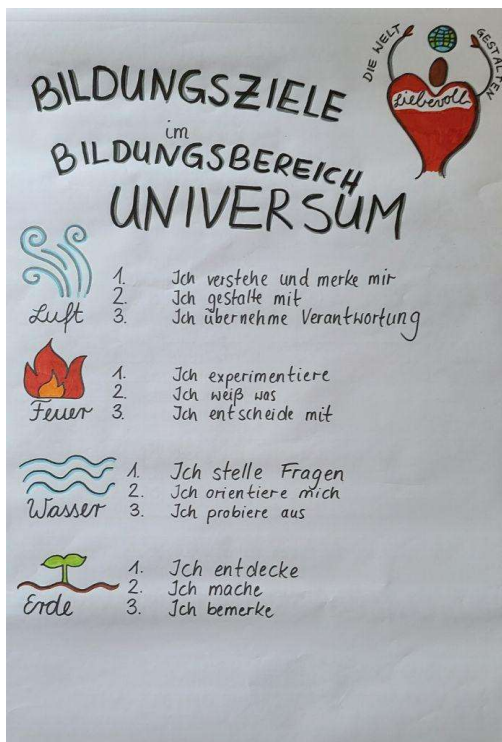 DIE WELT
GESTALTEN
Liebevoll
BILDUNGSZIELE
im
BILDUNGSBEREICH
UNIVERSUM
Luft
1. Ich verstehe und merke mir
2. Ich gestalte mit
3. Ich übernehme Verantwortung
Feuer
1. Ich experimentiere
2. Ich weiß was
3. Ich entscheide mit
Wasser
1. Ich stelle Fragen
2. Ich orientiere mich
3. Ich probiere aus
Erde
1. Ich entdecke
2. Ich mache
3. Ich bemerke